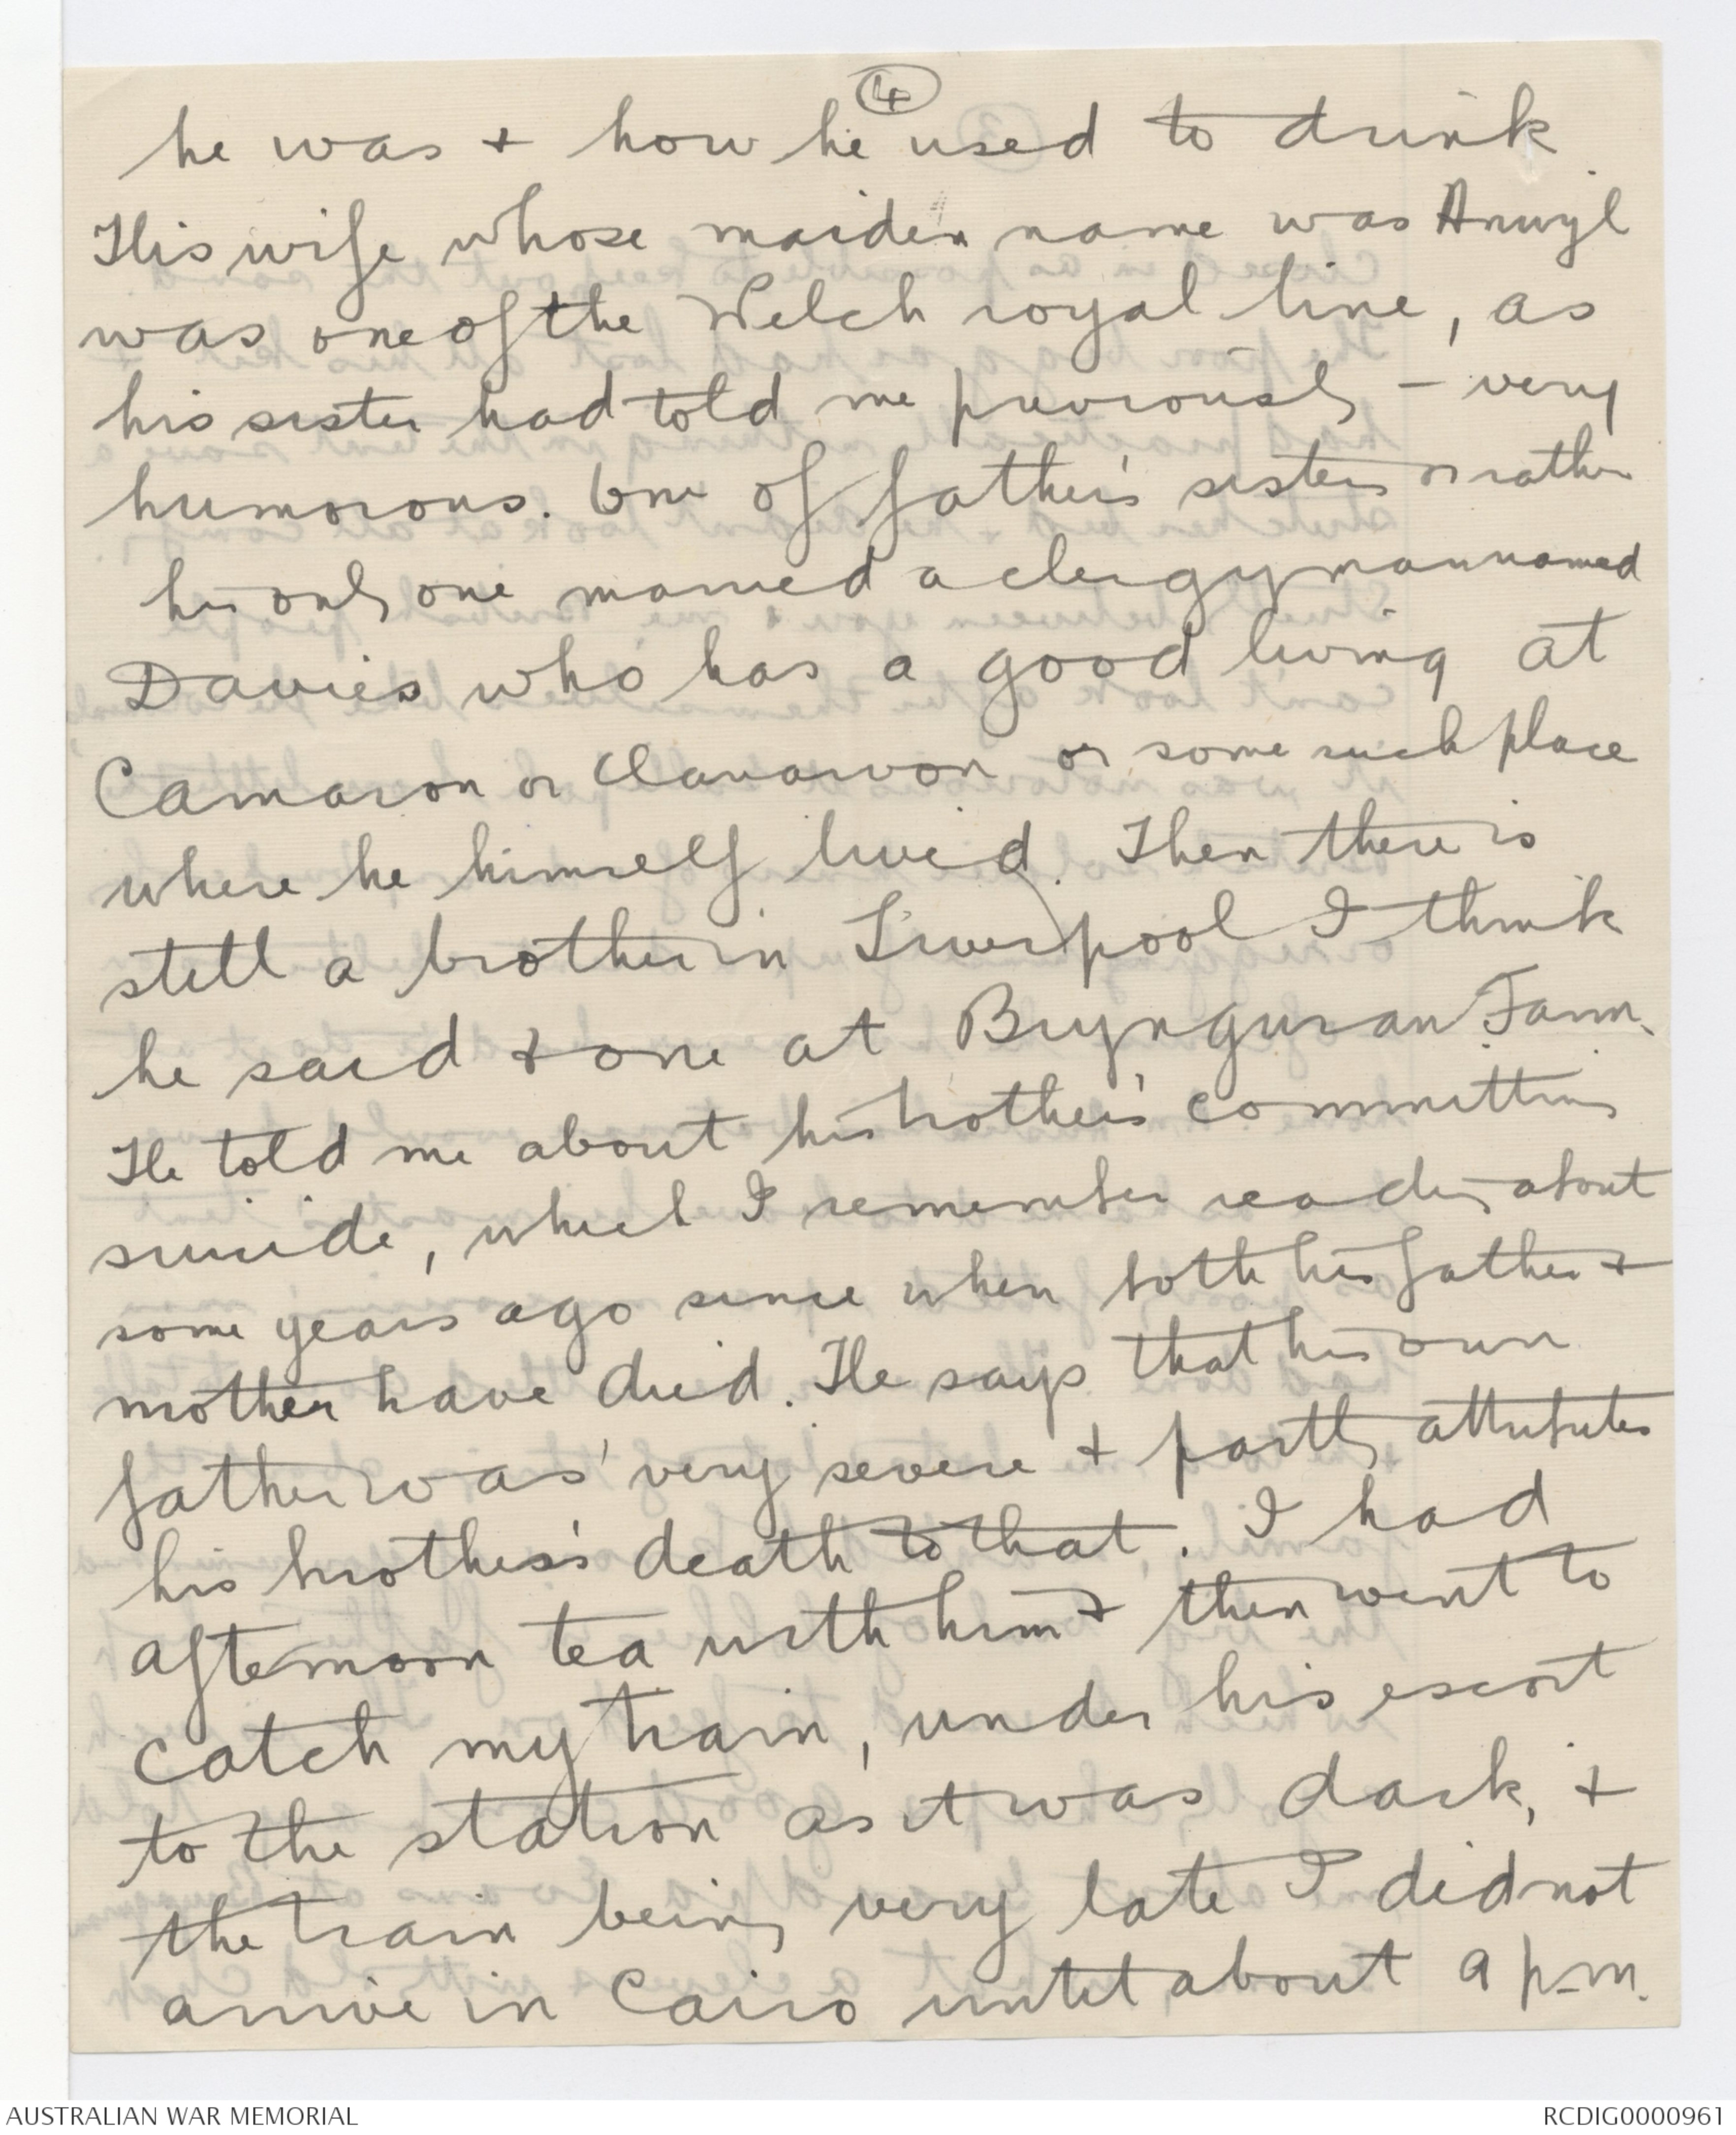 4
he was + how he used to drink
His wife whose maiden name was Anwyl
was one of the Welch royal line, as
his sister had told me previously - very
humorous. One of father's sisters or rather
his only one married a clergyman named
Davies who has a good living at
Camaron or Clanarvon or some such place
where he himself lived. Then there is
still a brother in Liverpool I think
he said & one at Bryngwran Farm.
He told me about his brother's committing
suicide, which I remember reading about
some years ago since when both his father +
mother have died. He says that his own
father was very severe + partly attributes
his brother's death to that. I had
afternoon tea with him + then went to
catch my train, under his escort
to the station as it was dark, +
the train being very late I did not
arrive in Cairo until about 9 p.m.
AUSTRALIAN WAR MEMORIAL
RCDIG0000961